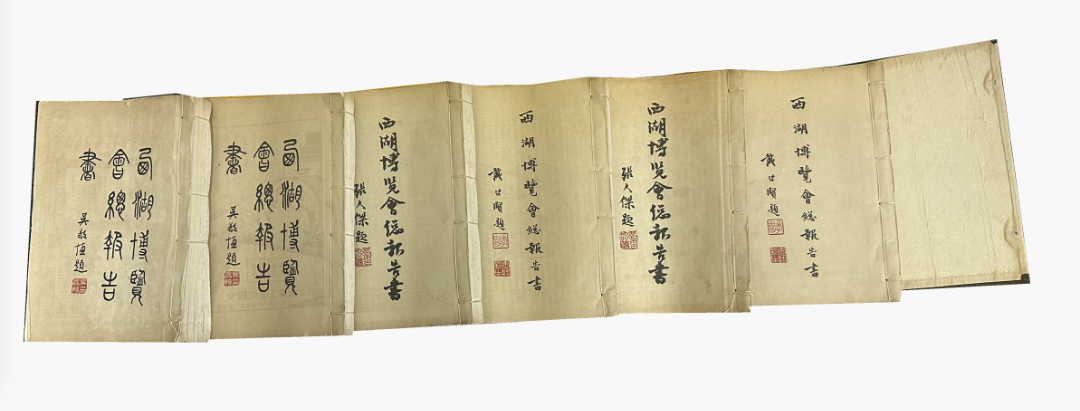 西湖博覽
會總報告
書
吳敬恆題
西湖博覽
會總報告
書
吳敬恆題
西湖博覽會總報告書
張人傑題
西湖博覽會總報告書
戴傳賢題
西湖博覽會總報告書
張人傑題
西湖博覽會總報告書
戴傳賢題